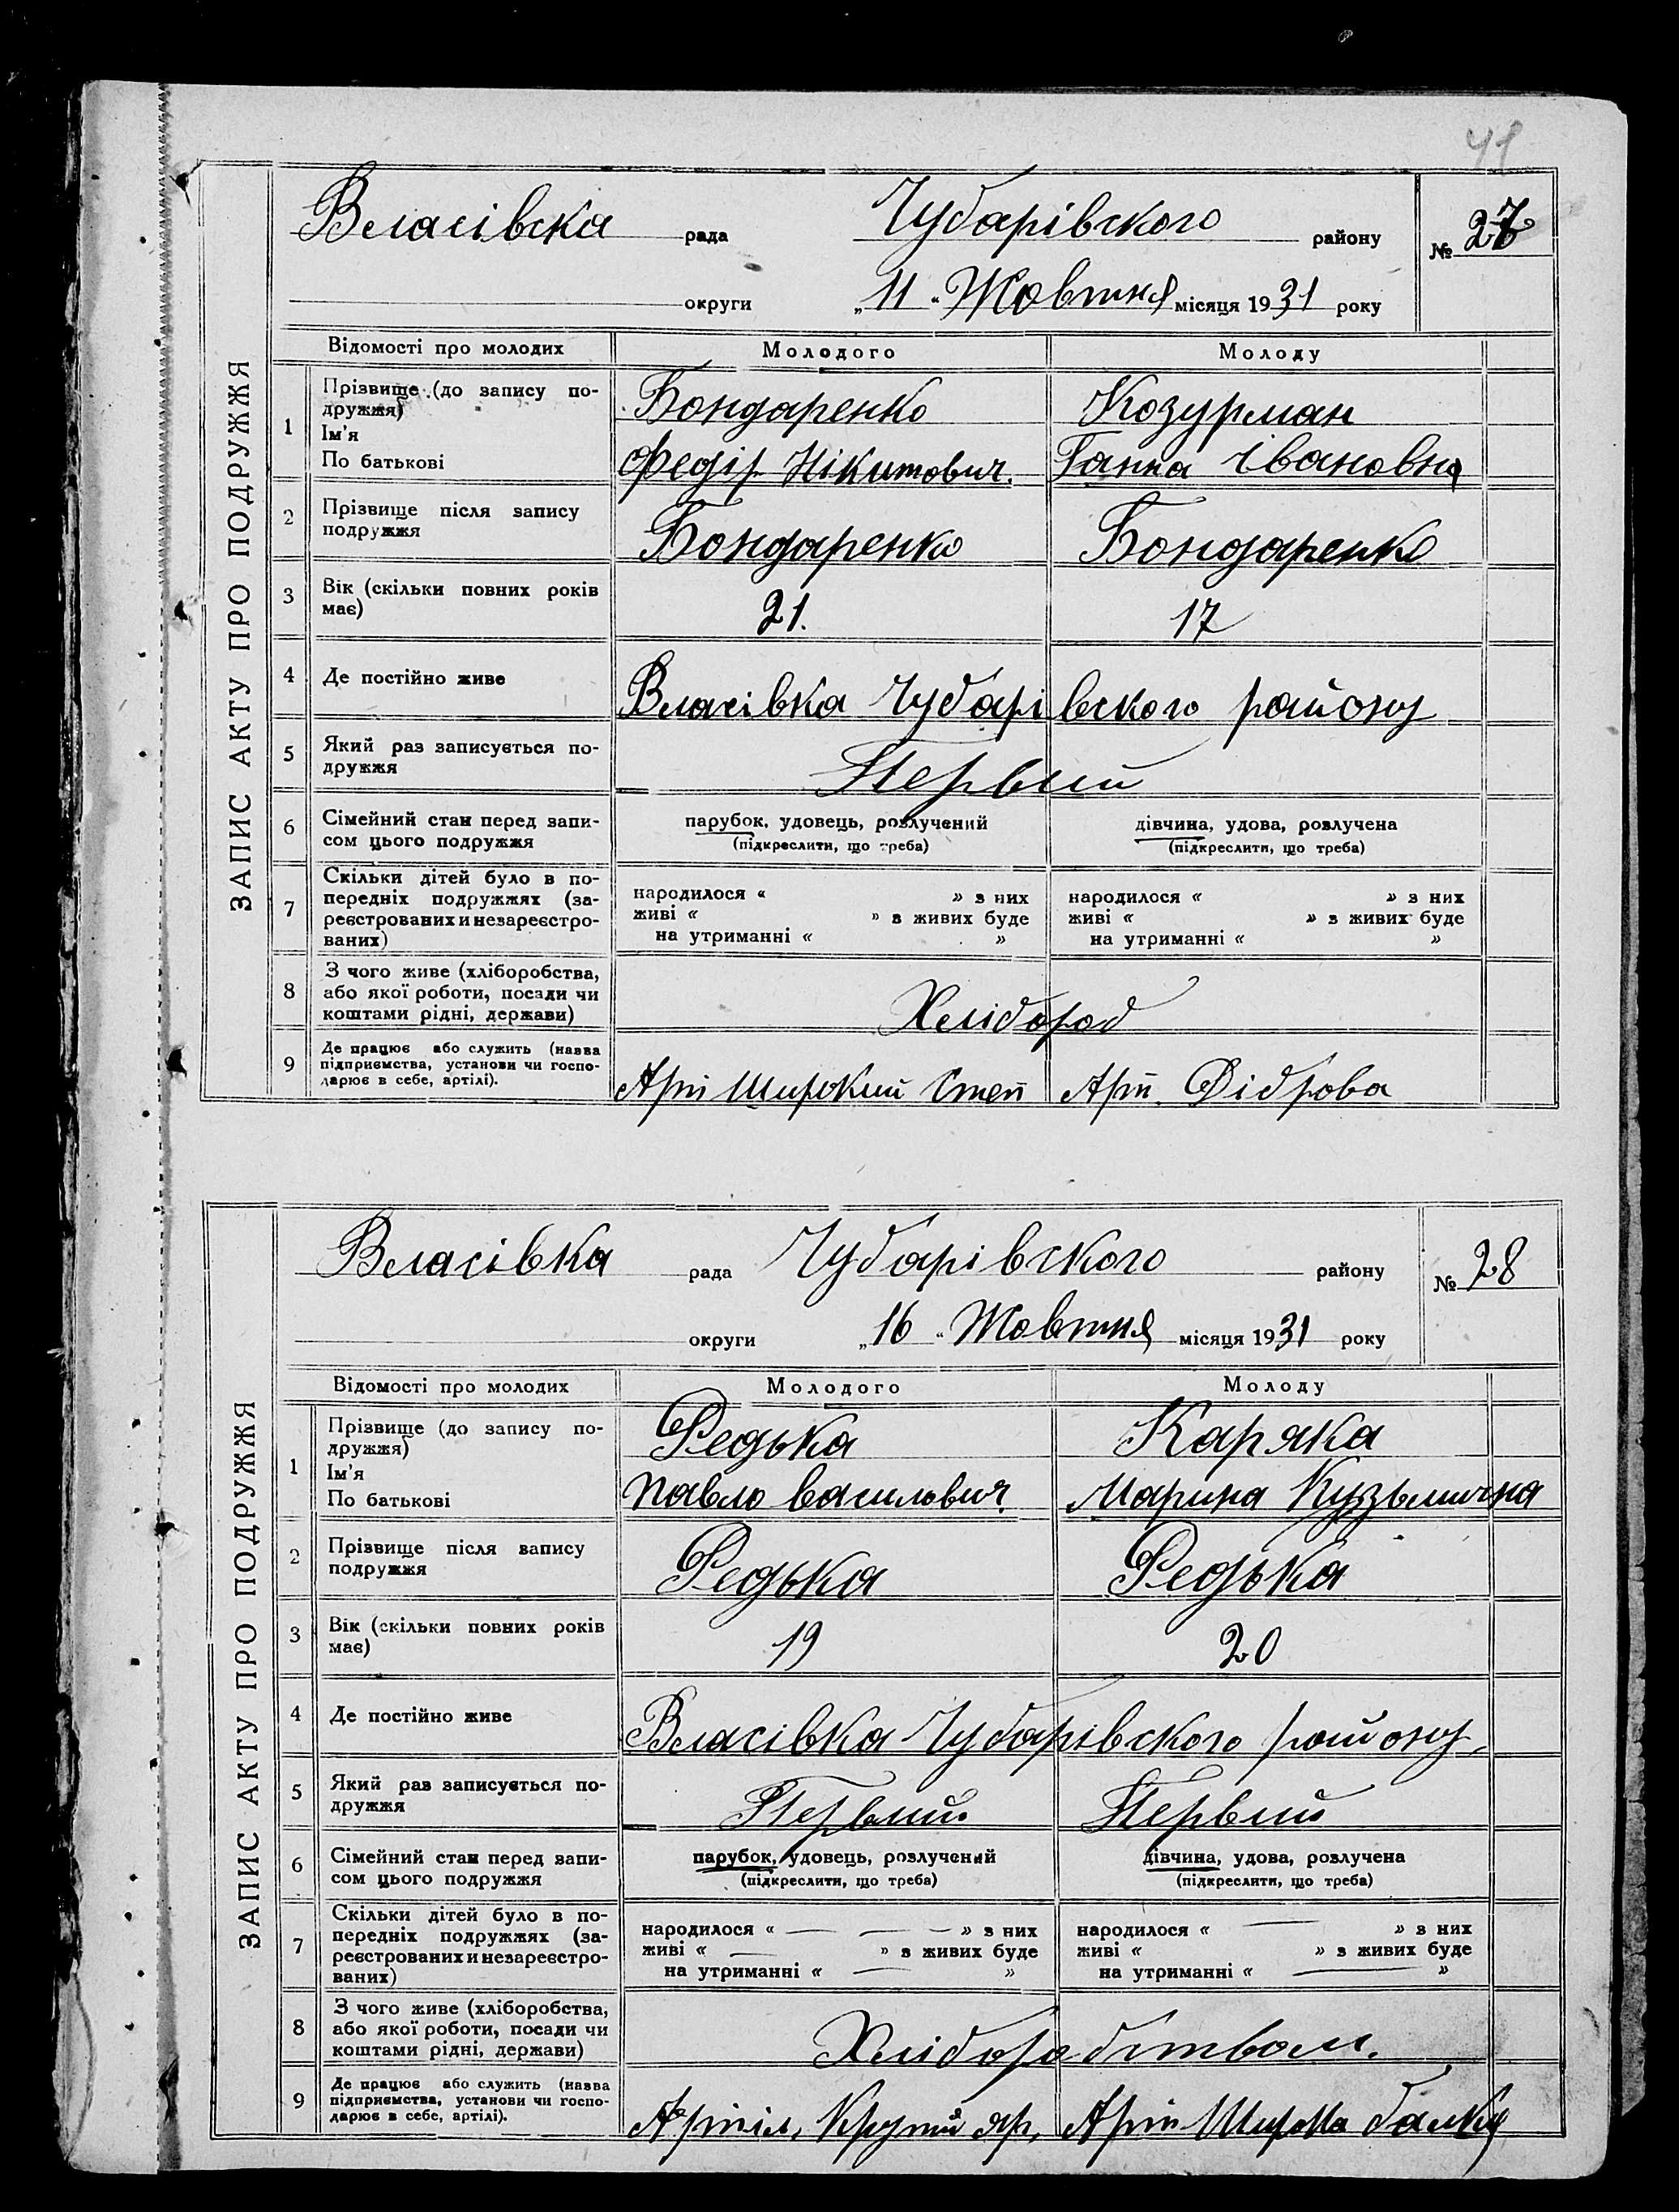 41
ЗАПИС АКТУ ПРО ПОДРУЖЖЯ
Власівска рада Чубарівского району № 27
округи „11“ Жовтня місяця 1931 року
Відомості про молодих Молодого Молоду
1 Прізвище (до запису по-
дружжя) Бондаренко Козурман
Ім'я
По батькові Федір Нікитович. Ганна Івановна
2 Прізвище після запису
подружжя Бондаренко Бондаренко
3 Вік (скільки повних років
має) 21. 17
4 Де постійно живе Власівка Чубарівского району
5 Який раз записується по-
дружжя Первий
6 Сімейний стан перед запи-
сом цього подружжя
парубок, удовець, розлучений дівчина, удова, розлучена
(підкреслити, що треба) (підкреслити, що треба)
7 Скільки дітей було в по-
передніх подружжях (за-
реєстрованих и незареєстро-
ваних)
народилося « » з них народилося « » з них
живі « » з живих буде живі « » з живих буде
на утриманні « » на утриманні « »
8 З чого живе (хліборобства,
або якої роботи, посади чи
коштами рідні, держави) Хлібороб
9 Де працює або служить (назва
підприємства, установи чи госпо-
дарює в себе, артілі). Арт Широкий Степ Арт. Діброва
ЗАПИС АКТУ ПРО ПОДРУЖЖЯ
Власівка рада Чубарівского району № 28
округи „16“ Жовтня місяця 1931 року
Відомості про молодих Молодого Молоду
1 Прізвище (до запису по-
дружжя) Редька Каряка
Ім'я
По батькові Павло Василович Марина Кузьминична
2 Прізвище після запису
подружжя Редька Редька
3 Вік (скільки повних років
має) 19 20
4 Де постійно живе Власівка Чубарівского району
5 Який раз записується по-
дружжя Первий Первий
6 Сімейний стан перед запи-
сом цього подружжя
парубок, удовець, розлучений дівчина, удова, розлучена
(підкреслити, що треба) (підкреслити, що треба)
7 Скільки дітей було в по-
передніх подружжях (за-
реєстрованих и незареєстро-
ваних)
народилося « — — — » з них народилося « — » з них
живі « — » з живих буде живі « » з живих буде
на утриманні « — » на утриманні « — »
8 З чого живе (хліборобства,
або якої роботи, посади чи
коштами рідні, держави) Хліборобством.
9 Де працює або служить (назва
підприємства, установи чи госпо-
дарює в себе, артілі). Артіл, Крутий яр, Арт Широка балка